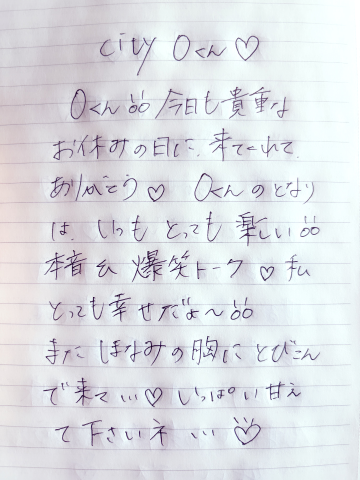 city Oくん♡
Oくん 今日も貴重な
お休みの日に、来てくれて
ありがとう♡ Oくんのとなり
は、いつもとっても楽しい
本音&爆笑トーク♡私
とっても幸せだよ〜
またほなみの胸にとびこん
で来て…♡いっぱい甘え
て下さいネ…♡